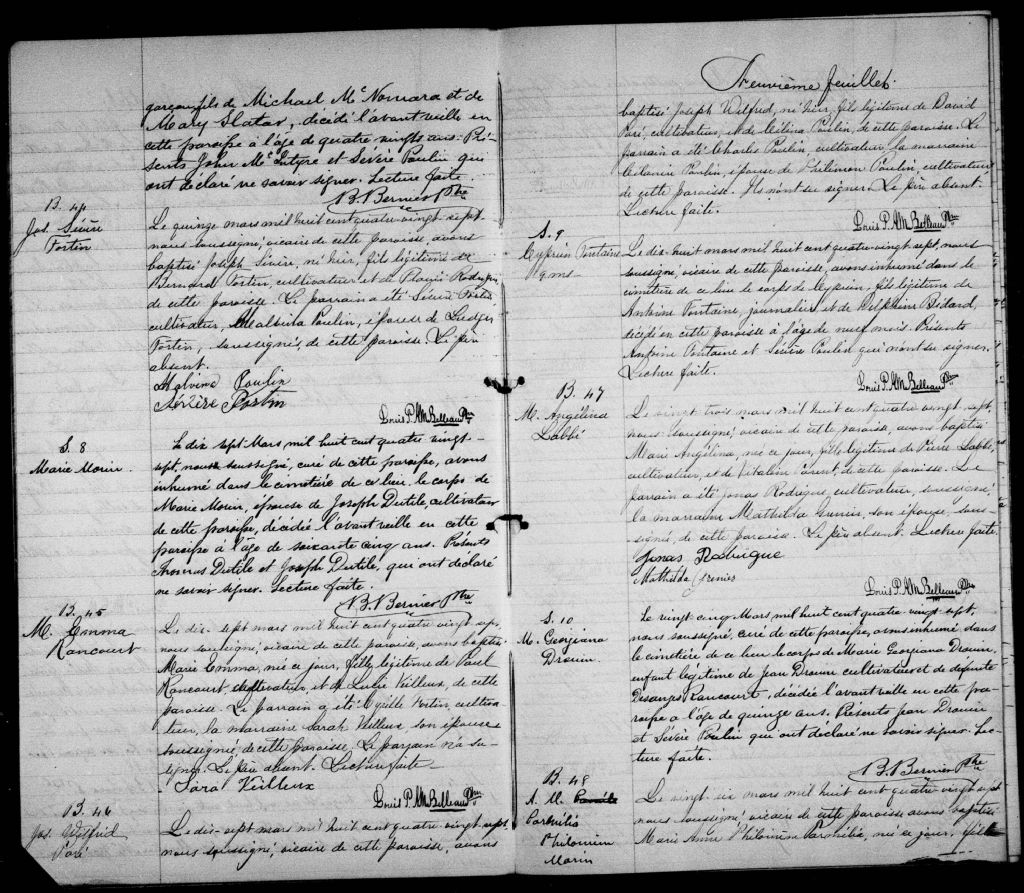 garçon, fils de Michael Mc Nomara et de
Mary Slatar, décédé l'avant veille en
cette paroisse à l'âge de quatre vingts ans. Pré-
sents John Mc Intyre et Sévère Poulin qui
ont déclaré ne savoir signer. Lecture faite
B. Bernier Ptre
B. 44
Jos. Sévère
Fortin
Le quinze mars mil huit cent quatre-vingt-sept
nous soussigné, vicaire de cette paroisse, avons
baptisé Joseph Sévère, né hier, fils légitime de
Bernard Fortin, cultivateur et de Rodrigue,
de cette paroisse. Le parrain a été Sévère Fortin
cultivateur, Malvina Poulin, épouse de
Fortin, soussignés, de cette paroisse Le père
absent.
Malvina Poulin
Sévère Fortin
Louis P. A. M. Belleau Ptre
S. 8
Marie Morin.
Le dix sept Mars mil huit cent quatre vingt-
sept, nous soussigné, curé de cette paroisse, avons
inhumé dans le cimetière de ce lieu, le corps de
Marie Morin, épouse de Joseph Dutile, cultivateur
de cette paroisse, décédée l'avant veille en cette
paroisse à l'âge de soixante cinq ans. Présents
Thomas Dutile et Joseph Dutile, qui ont déclaré
ne savoir signer. Lecture faite.
B. Bernier Ptre
B. 45
M. Emma
Rancourt
Le dix-sept mars mil huit cent quatre vingt sept,
nous soussigné, vicaire de cette paroisse, avons baptisé
Marie Emma, née ce jour, fille légitime de Paul
Rancourt, cultivateur et de Lucie Veilleux, de cette
paroisse. Le parrain a été Fortin, cultiva-
teur, la marraine Sarah Veilleux, son épouse
soussignée, de cette paroisse. Le parrain n'a su
signer. Le père absent. Lecture faite
Sara Veilleux
Louis P. A. M. Belleau Ptre
B. 46
Jos. Wilfrid
Paré
Le dix-sept mars mil huit cent quatre-vingt-sept
nous soussigné, vicaire de cette paroisse, avons
Neuvième feuillet
baptisé Joseph Wilfrid, né hier, fils légitime de David
Paré, cultivateur, et de Célina Poulin, de cette paroisse. Le
parrain a été Charles Poulin, cultivateur, la marraine
Poulin, épouse de Philémon Poulin, cultivateur
de cette paroisse. Ils n'ont su signer. Le père absent.
Lecture faite.
Louis P. A. M. Belleau Ptre
S. 9
Cyprien Fontaine
9 ms
Le dix-huit mars mil huit cent quatre-vingt sept, nous
soussigné, vicaire de cette paroisse, avons inhumé dans le
cimetière de ce lieu le corps de Cyprien, fils légitime de
Antoine Fontaine, journalier et de Delphine Bédard,
décédé en cette paroisse à l'âge de neuf mois. Présents
Antoine Fontaine et Sévère Poulin qui n'ont su signer.
Lecture faite.
Louis P. A. M. Belleau Ptre
B. 47
M. Angélina
Labbé
Le vingt trois mars mil huit cent quatre vingt sept,
nous soussigné, vicaire de cette paroisse, avons baptisé
Marie Angélina, née ce jour, fille légitime de Pierre Labbé,
cultivateur, et de Vitaline Parent, de cette paroisse. Le
parrain a été Jonas Rodrigue, cultivateur, soussigné,
la marraine Mathilda Grenier, son épouse, sous-
signée, de cette paroisse. Le père absent. Lecture faite
Jonas Rodrigue
Mathilda Grenier
Louis P. A. M. Belleau Ptre
S. 10
M. Georgiana
Drouin.
Le vingt cinq Mars mil huit cent quatre vingt sept,
nous soussigné, curé de cette paroisse, avons inhumé dans
le cimetière de ce lieu le corps de Marie Georgiana Drouin,
enfant légitime de Jean Drouin cultivateur et de défunte
Désanges Rancourt, décédée l'avant veille en cette pa-
roisse à l'âge de quinze ans. Présents Jean Drouin
et Sévère Poulin qui ont déclaré ne savoir signer. Lec-
ture faite.
B. Bernier Ptre
B. 48
A. M.
Parmilia
Philomène
Morin
Le vingt-six mars mil huit cent quatre-vingt sept
nous soussigné, vicaire de cette paroisse avons baptisé
Marie Anne Philomène Parmilia, née ce jour, fille